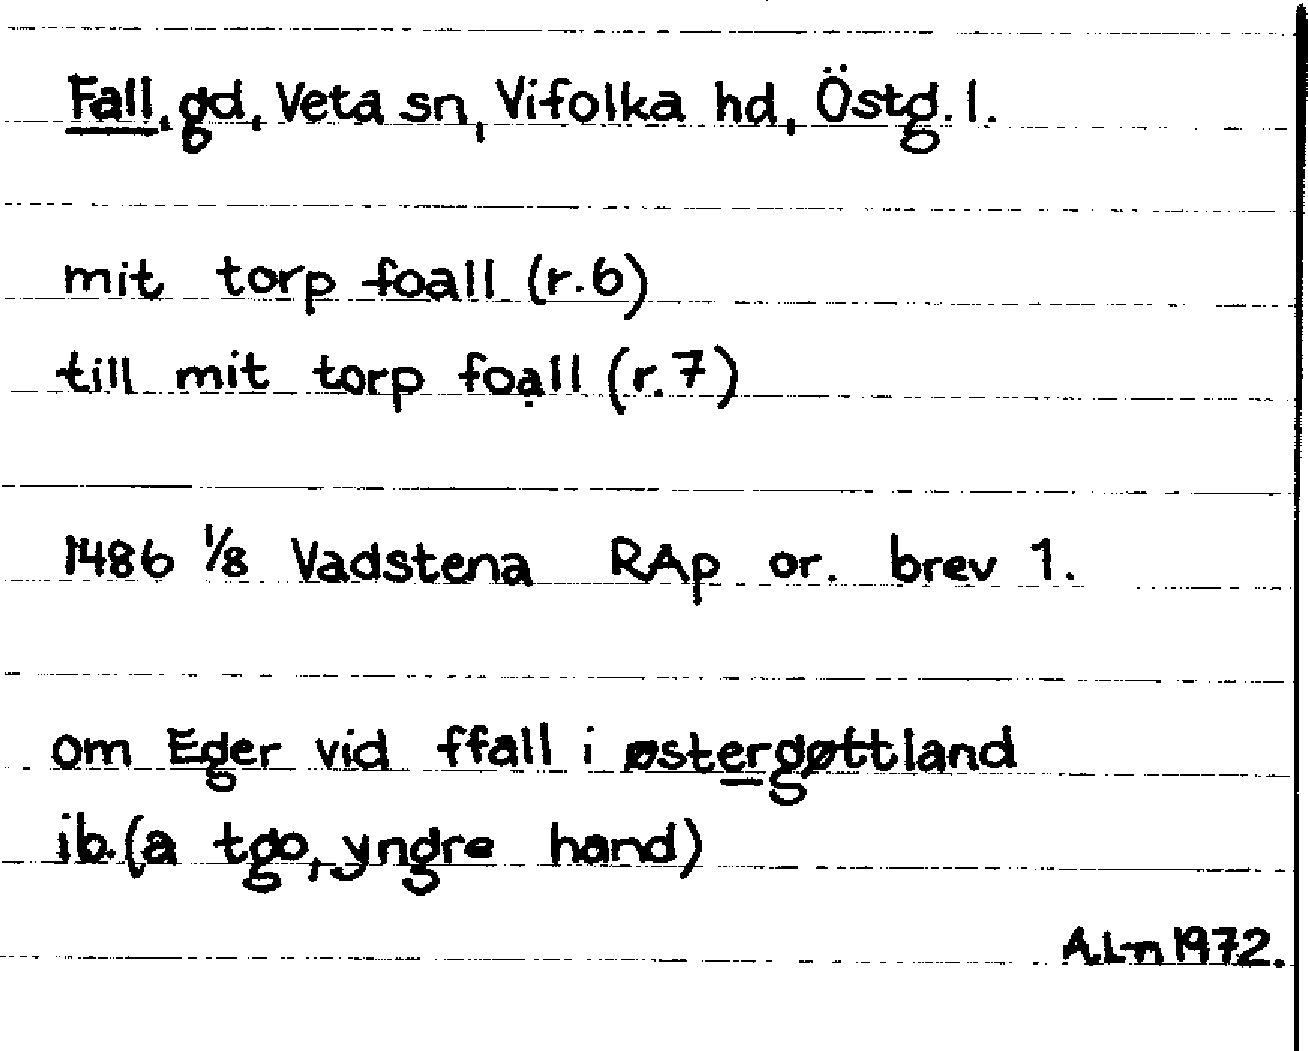 Fall, gd, Veta sn, Vifolka hd, Östg. l.
mit torp foall (r.6)
till mit torp foall (r.7)
1486 1/8 Vadstena RAp or. brev 1.
om Eger vid ffall i østergøttland
ib. (a tgo, yngre hand)
A.L-n 1972.